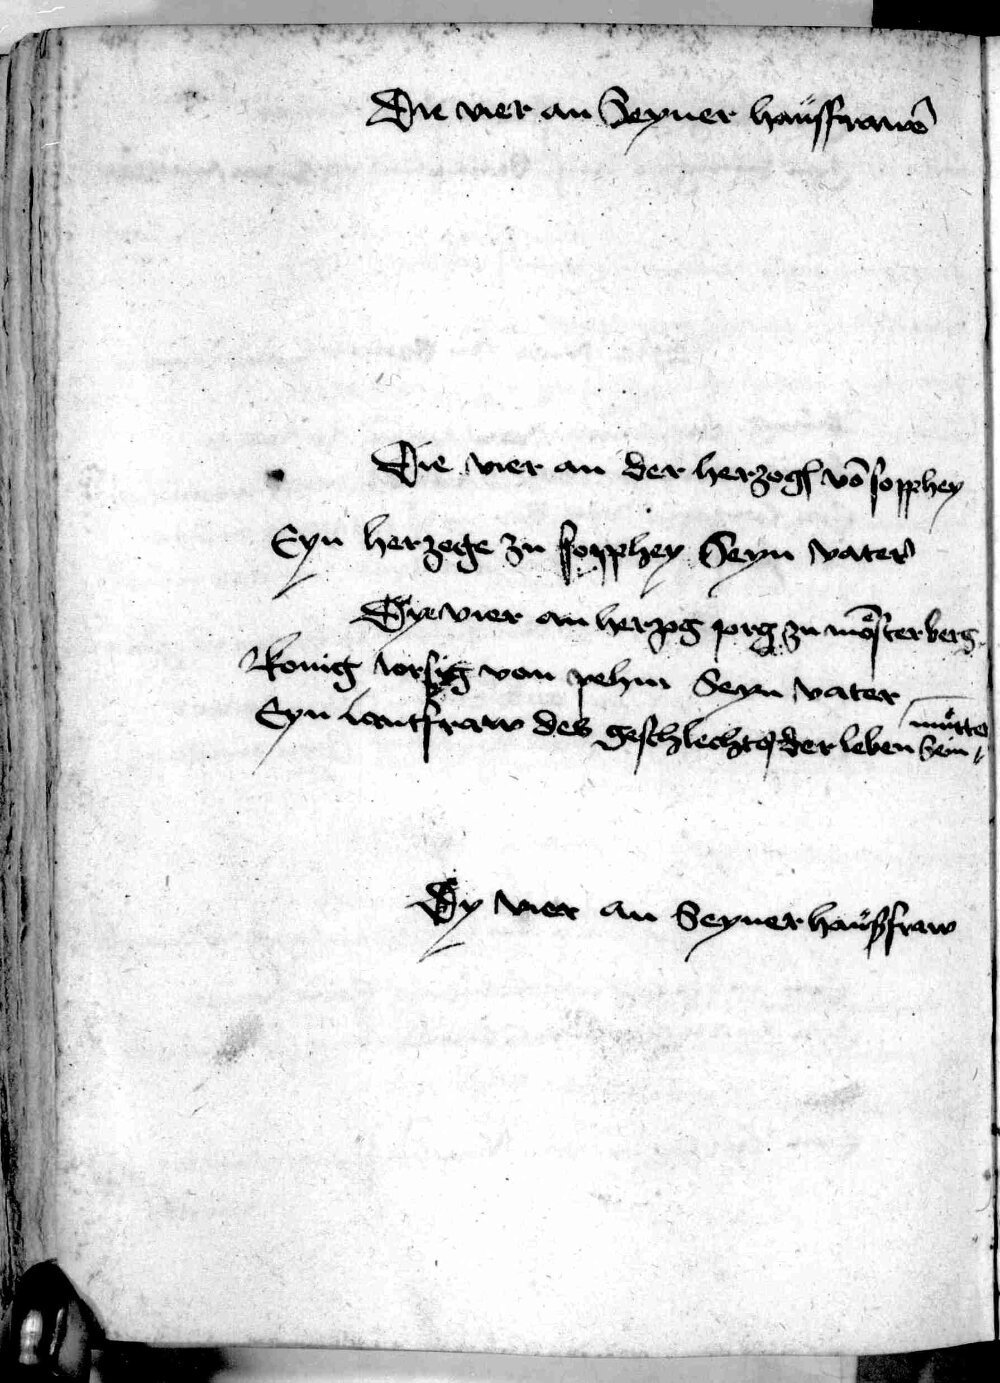 Die vier an Seyner haüssfrawē
Die vier an der herzogẜ vō sopphey
Eyn herzoge zu sopphey Seyn vater
Dye vier an herzog jorg zu mösterberg
konig Jorsig von pehm Seyn vater
Eyn lantfraw des geschlechts der leben Sein
mutter
Dy vier an Seyner haüsfraw